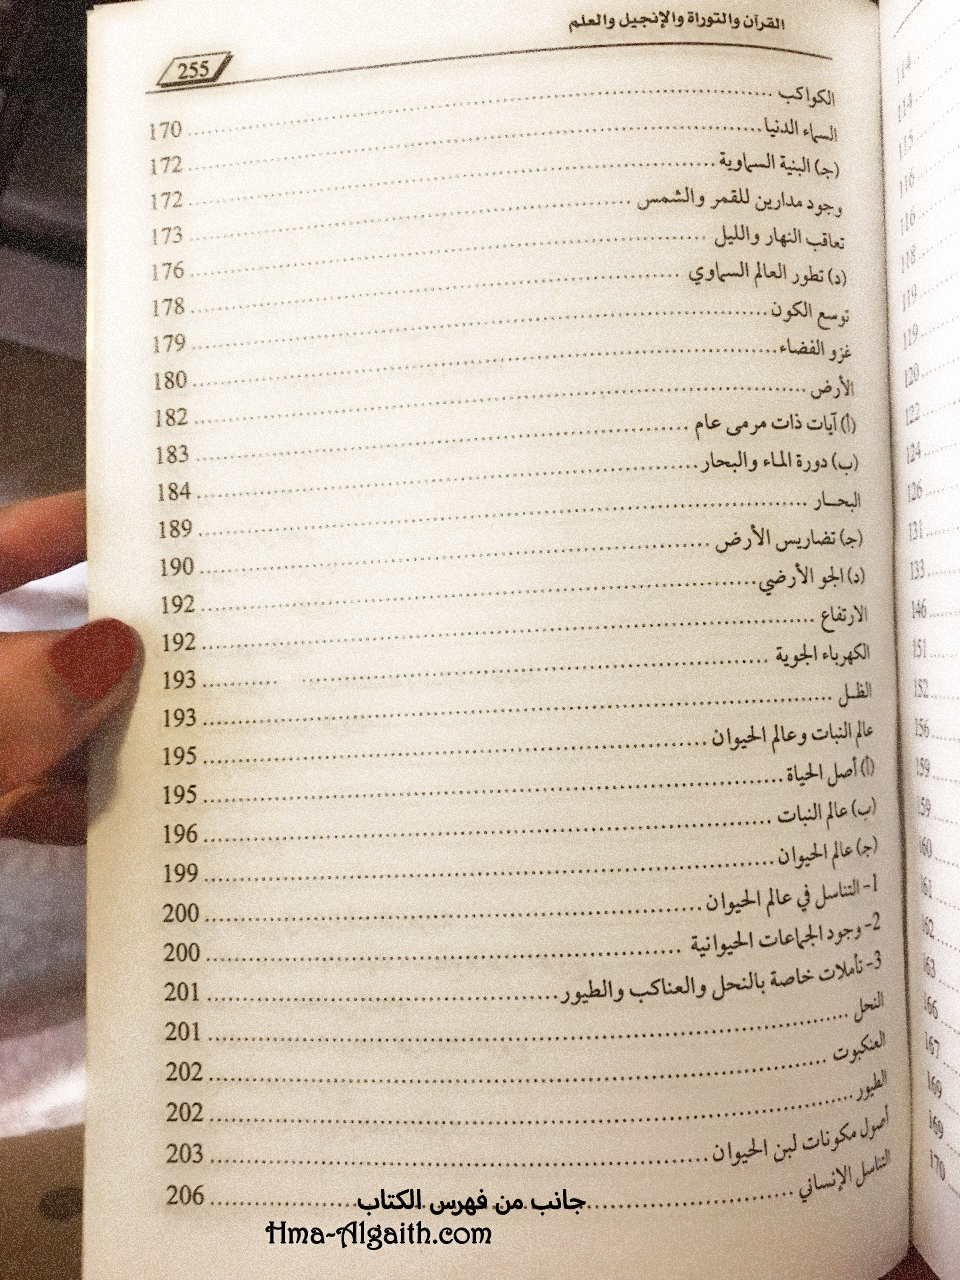 القرآن والتوراة والإنجيل والعلم
255
الكواكب ........ 170
السماء الدنيا ........ 172
(جـ) البنية السماوية ........ 172
وجود مدارين للقمر والشمس ........ 173
تعاقب النهار والليل ........ 176
(د) تطور العالم السماوي ........ 178
توسع الكون ........ 179
غزو الفضاء ........ 180
الأرض ........ 182
(أ) آيات ذات مرمى عام ........ 183
(ب) دورة الماء والبحار ........ 184
البحـــار ........ 189
(جـ) تضاريس الأرض ........ 190
(د) الجو الأرضي ........ 192
الارتفاع ........ 192
الكهرباء الجوية ........ 193
الظـل ........ 193
عالم النبات وعالم الحيوان ........ 195
(أ) أصل الحياة ........ 195
(ب) عالم النبات ........ 196
(جـ) عالم الحيوان ........ 199
1- التناسل في عالم الحيوان ........ 200
2- وجود الجماعات الحيوانية ........ 200
3- تأملات خاصة بالنحل والعناكب والطيور ........ 201
النحل ........ 201
العنكبوت ........ 202
الطيور ........ 202
أصول مكونات لبن الحيوان ........ 203
التناسل الإنساني ........ 206
جانب من فهرس الكتاب
Hma-Algaith.com
114
114
115
116
116
118
119
119
120
122
124
126
131
133
146
151
152
156
159
159
160
161
162
163
166
167
169
169
170